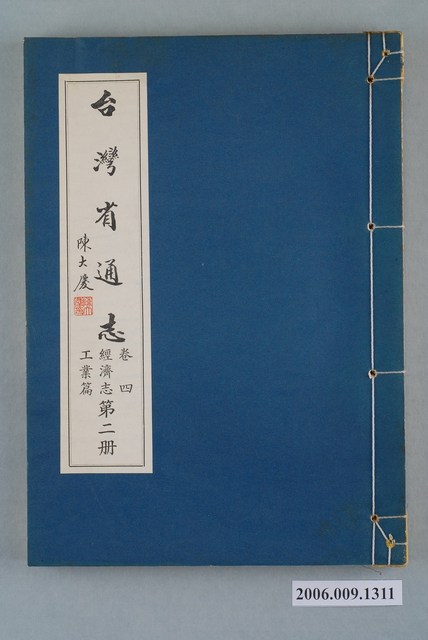 台灣省通志
陳大慶
卷四
經濟志第二册
工業篇
2006.009.1311